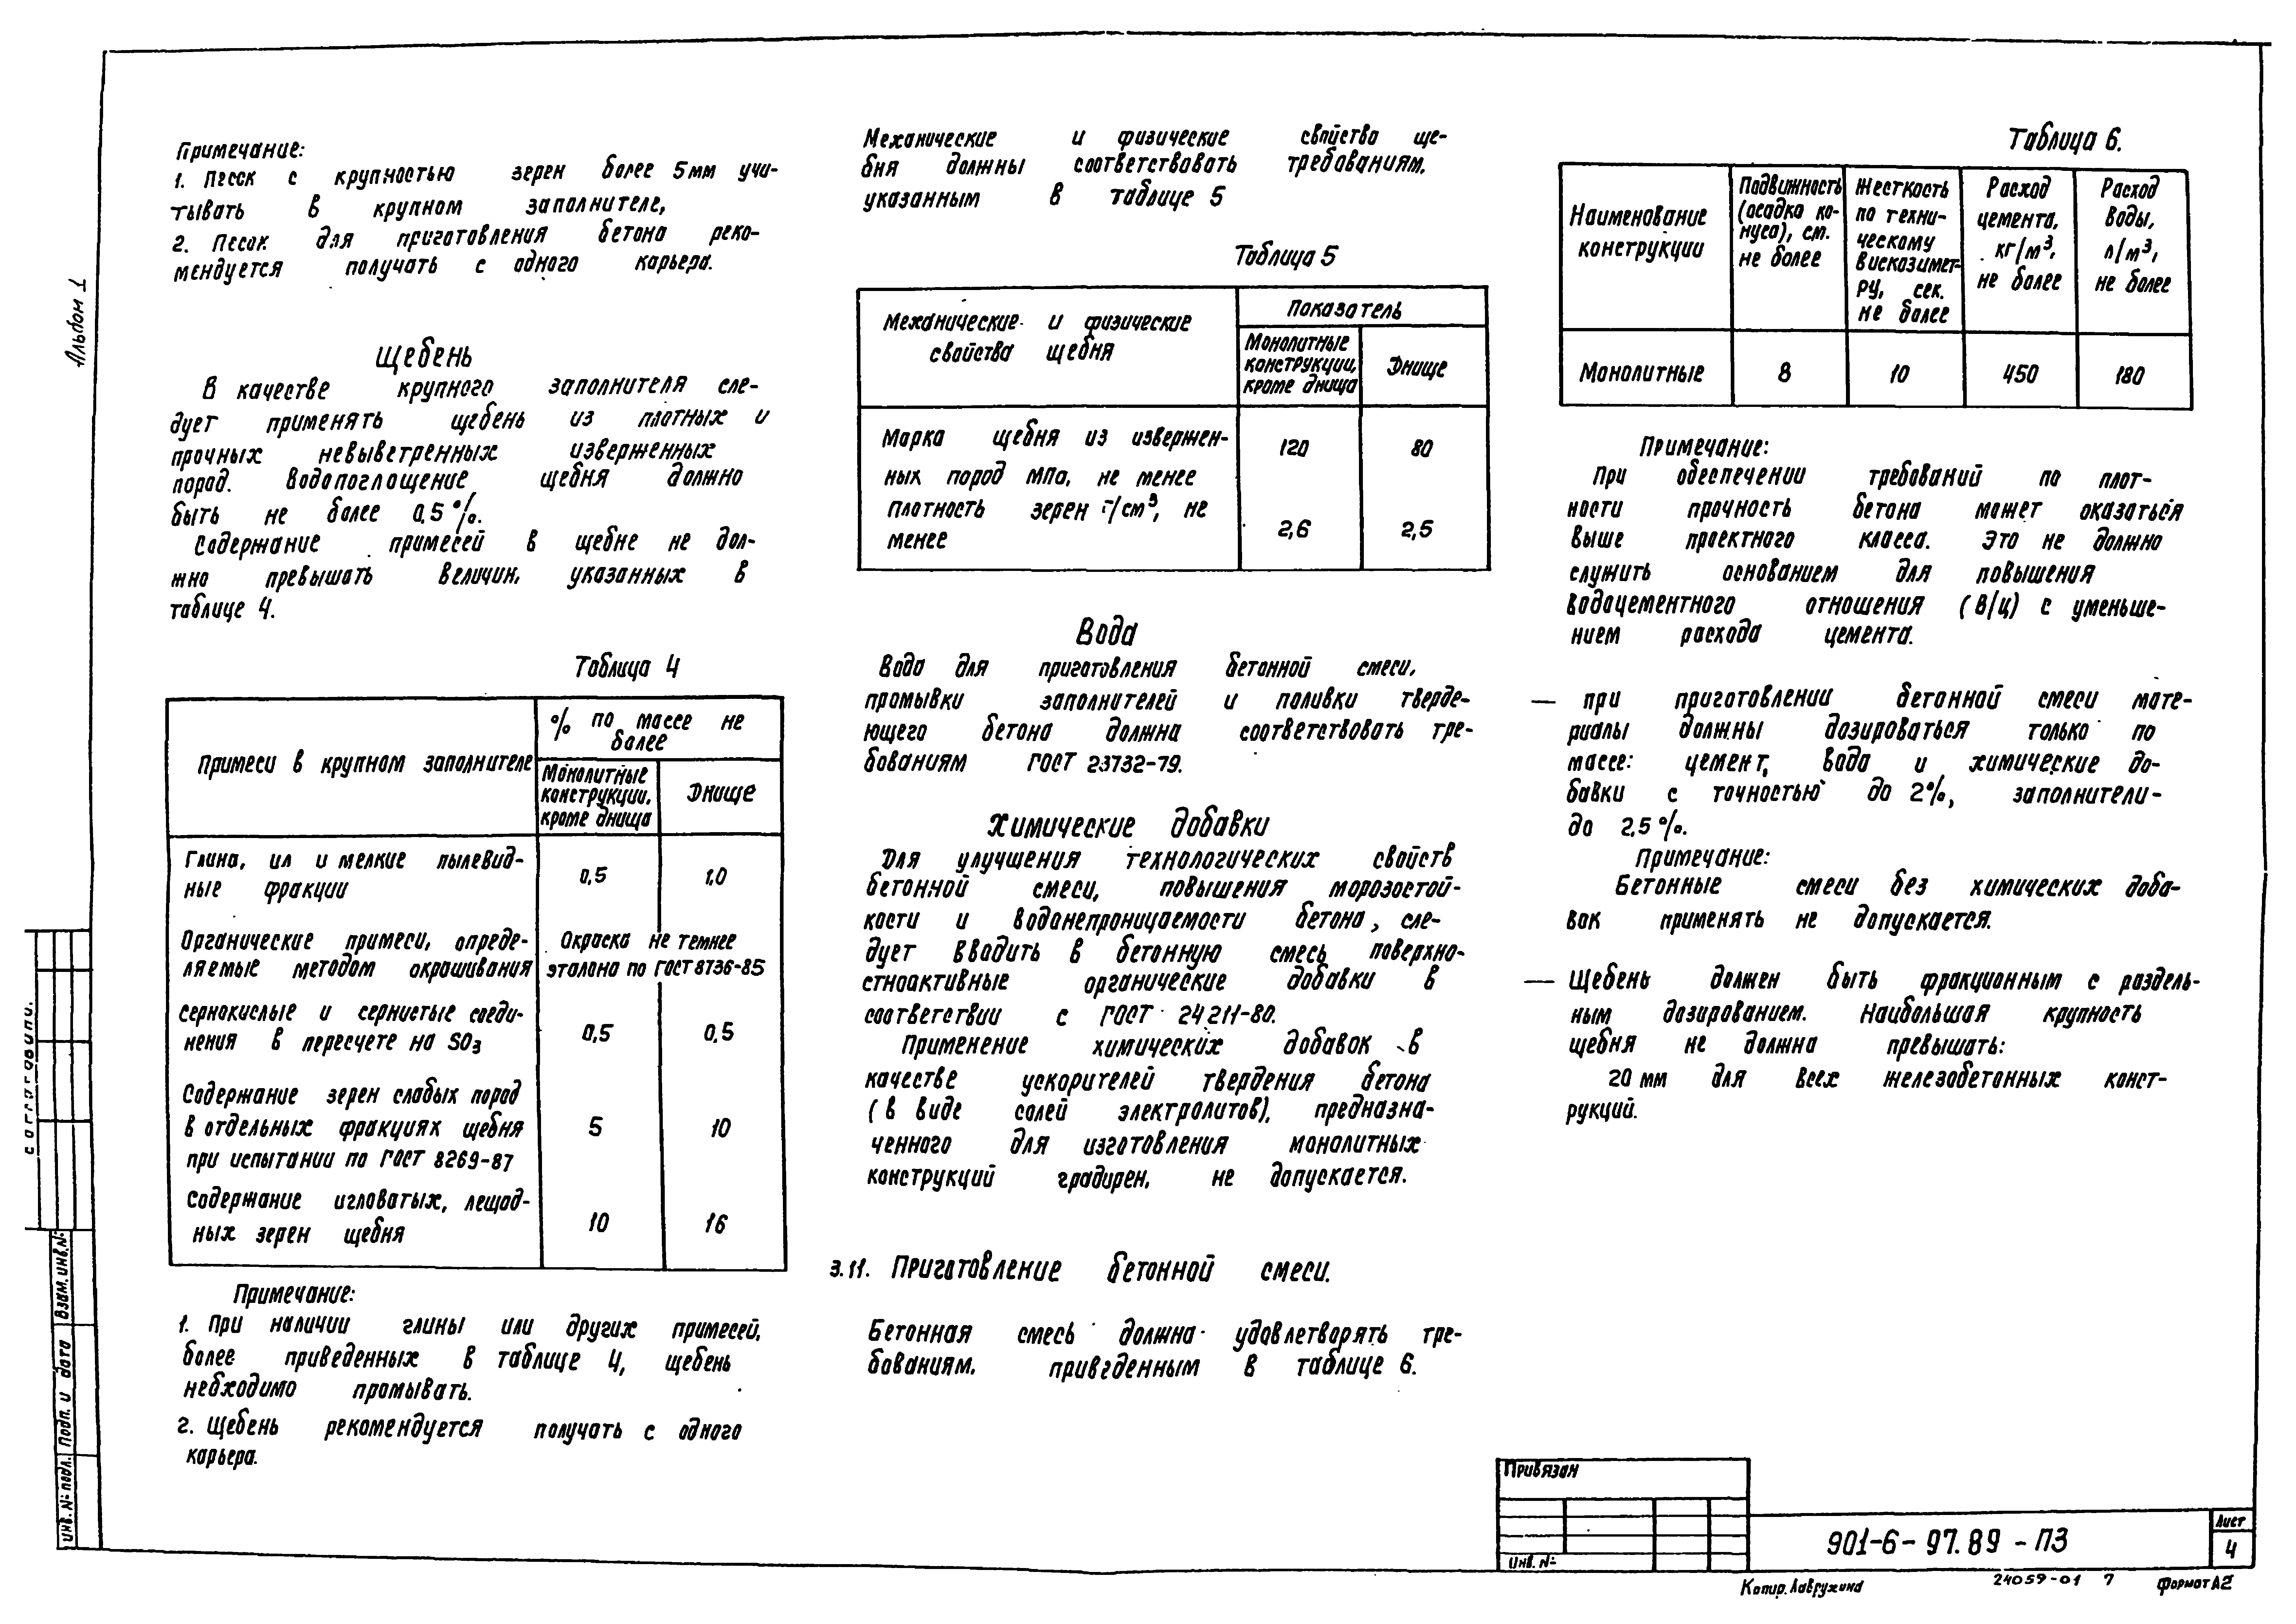 Альбом 1
Примечание:
1. Песок с крупностью зерен более 5 мм учи-
тывать в крупном заполнителе,
2. Песок для приготовления бетона реко-
мендуется получать с одного карьера.
Щебень
В качестве крупного заполнителя сле-
дует применять щебень из плотных и
прочных невыветренных изверженных
пород. Водопоглощение щебня должно
быть не более 0,5%.
Содержание примесей в щебне не дол-
жно превышать величин, указанных в
таблице 4.
Таблица 4
Примеси в крупном заполнителе
% по массе не
более
Монолитные
конструкции,
кроме днища
Днище
Глина, ил и мелкие пылевид-
ные фракции
0,5
1,0
Органические примеси, опреде-
ляемые методом окрашивания
Окраска не темнее
эталона по ГОСТ 8736-85
Сернокислые и сернистые соеди-
нения в пересчете на SO3
0,5
0,5
Содержание зерен слабых пород
в отдельных фракциях щебня
при испытании по ГОСТ 8269-87
5
10
Содержание игловатых, лещад-
ных зерен щебня
10
16
Примечание:
1. При наличии глины или других примесей,
более приведенных в таблице 4, щебень
необходимо промывать.
2. Щебень рекомендуется получать с одного
карьера.
Механические и физические свойства ще-
бня должны соответствовать требованиям,
указанным в таблице 5
Таблица 5
Механические и физические
свойства щебня
Показатель
Монолитные
конструкции,
кроме днища
Днище
Марка щебня из извержен-
ных пород МПа, не менее
120
80
плотность зерен г/см³, не
менее
2,6
2,5
Вода
Вода для приготовления бетонной смеси,
промывки заполнителей и поливки тверде-
ющего бетона должна соответствовать тре-
бованиям ГОСТ 23732-79.
Химические добавки
Для улучшения технологических свойств
бетонной смеси, повышения морозостой-
кости и водонепроницаемости бетона, сле-
дует вводить в бетонную смесь поверхно-
стноактивные органические добавки в
соответствии с ГОСТ 24211-80.
Применение химических добавок в
качестве ускорителей твердения бетона
(в виде солей электролитов), предназна-
ченного для изготовления монолитных
конструкций градирен, не допускается.
3.11. Приготовление бетонной смеси.
Бетонная смесь должна удовлетворять тре-
бованиям, приведенным в таблице 6.
Таблица 6.
Наименование
конструкции
Подвижность
(осадка ко-
нуса), см.
не более
Жесткость
по техни-
ческому
вискозимет-
ру, сек.
не более
Расход
цемента,
кг/м³,
не более
Расход
воды,
л/м³,
не более
Монолитные
8
10
450
180
Примечание:
При обеспечении требований по плот-
ности прочность бетона может оказаться
выше проектного класса. Это не должно
служить основанием для повышения
водоцементного отношения (В/Ц) с уменьше-
нием расхода цемента.
— при приготовлении бетонной смеси мате-
риалы должны дозироваться только по
массе: цемент, вода и химические до-
бавки с точностью до 2%, заполнители-
до 2,5%.
Примечание:
Бетонные смеси без химических доба-
вок применять не допускается.
— Щебень должен быть фракционным с раздель-
ным дозированием. Наибольшая крупность
щебня не должна превышать:
20 мм для всех железобетонных конст-
рукций.
Согласовани.
Взам. инв. №
Подп. и дата
Инв. № подл.
Привязан
Инв. №
901-6-97.89-ПЗ
Лист
4
Копир. Лаврухина
24059-01 7
Формат А2